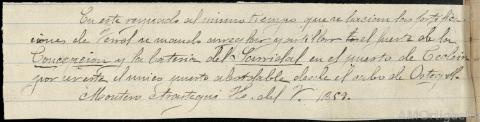 En este reynado al mismo tiempo que se hacian las fortificaciones de Ferrol se mando arreglar y artillar el fuerte de la
Concepcion y la bateria del Sarridal en el puerto de Cedeira
por ser este el unico puerto abordable desde el cabo de Ortegal.
Montero Arostegui H. del F. 1859.